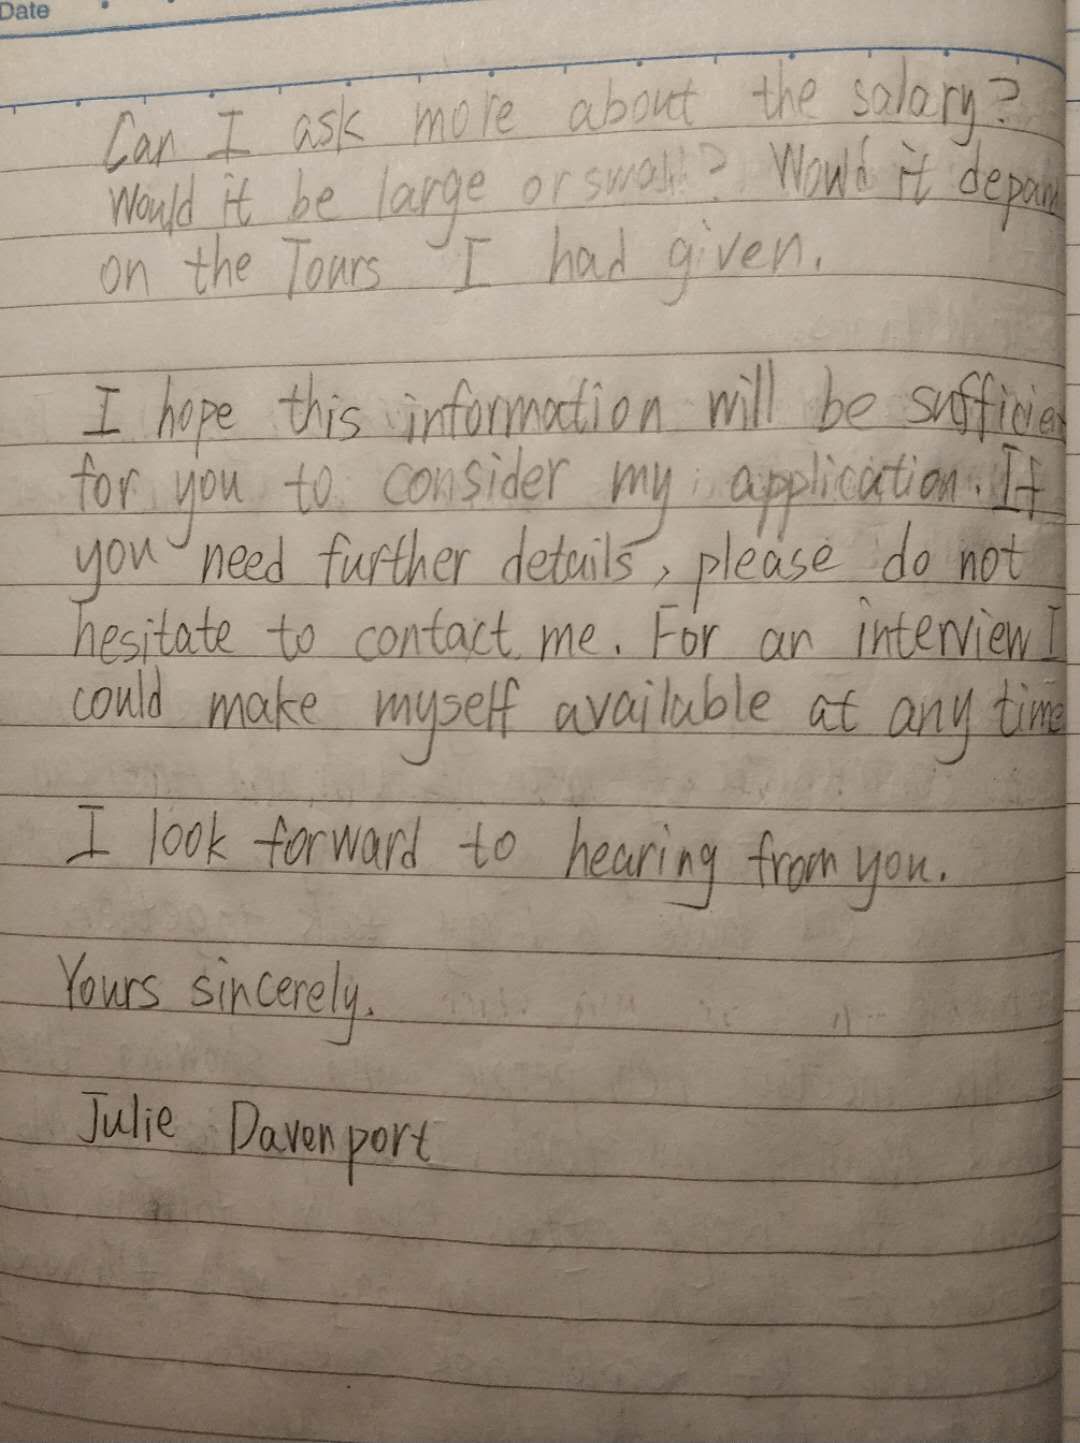 Date
Can I ask more about the salary?
Would it be large or small? Would it depan
on the Tours I had given.
I hope this information will be sufficien
for you to consider my application. If
you need further details, please do not
hesitate to contact me. For an interview I
could make myself available at any time
I look forward to hearing from you.
Yours sincerely.
Julie Davenport